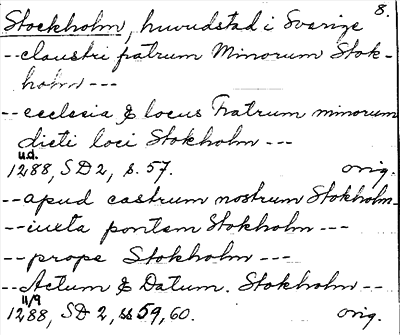 8.
Stockholm, huvudstad i Sverige
-- claustri fratrum Minorum Stok-
holm ---
-- ecclesia & locus Fratrum minorum
dicti loci Stokholm ---
u.d.
1288, SD 2, s. 57. orig.
-- apud castrum nostrum Stokholm-
-- iuxta pontem Stokholm ---
-- prope Stokholm ---
-- Actum & Datum. Stokholm --
11/9
1288, SD 2, ss 59, 60. orig.